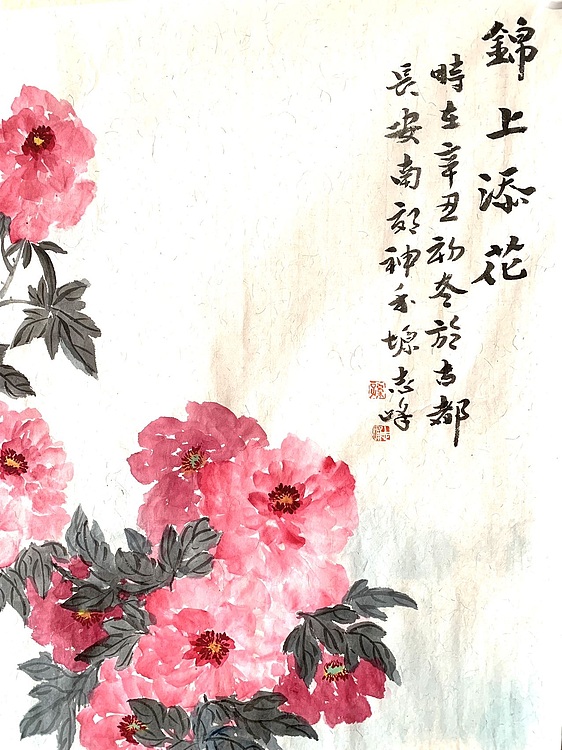 錦上添花
時在辛丑初冬於古都
長安南郊神禾塬志峰